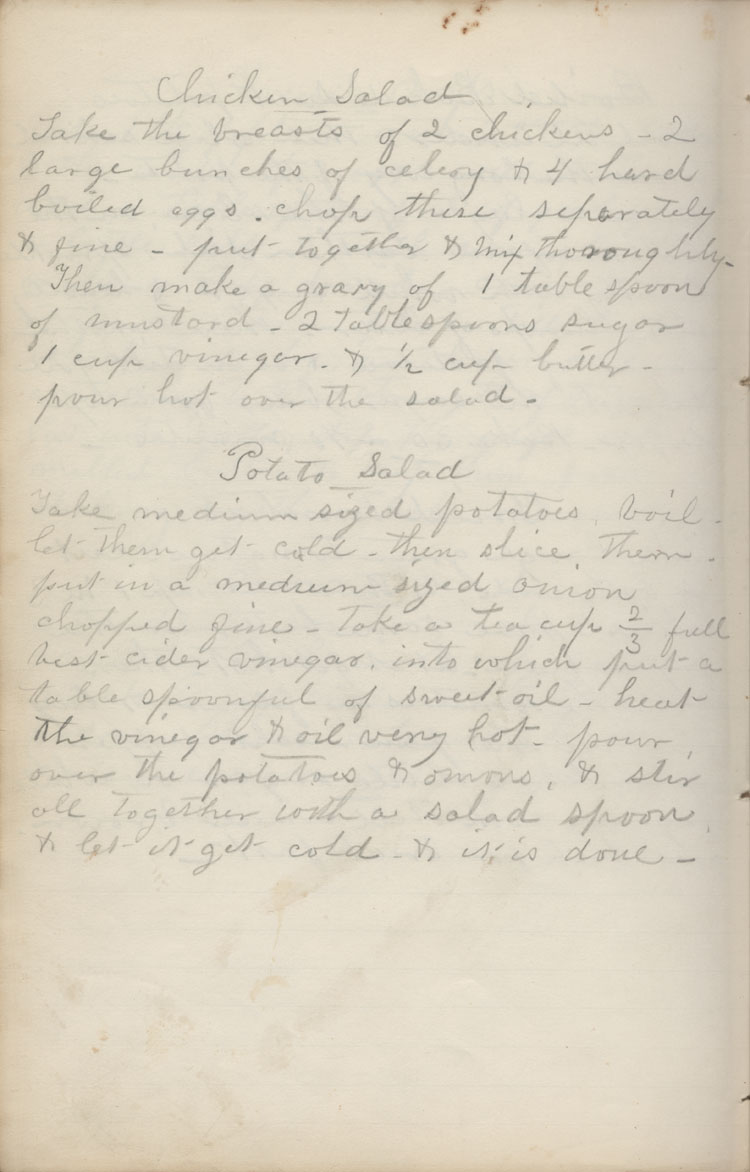 Chicken Salad
Take the breasts of 2 chickens - 2
large bunches of celery & 4 hard
boiled eggs. chop these separately
& fine - put together & mix thoroughly -
Then make a gravy of 1 table spoon
of mustard - 2 Tablespoons sugar
1 cup vinegar. & ½ cup butter -
pour hot over the salad -
Potato Salad
Take medium sized potatoes, boil -
let them get cold - then slice them -
put in a medium sized onion
chopped fine - Take a tea cup 2/3 full
best cider vinegar, into which put a
table spoonful of sweet oil - heat
the vinegar & oil very hot - pour
over the potatoes & onions, & stir
all together with a salad spoon
& let it get cold - & it is done -